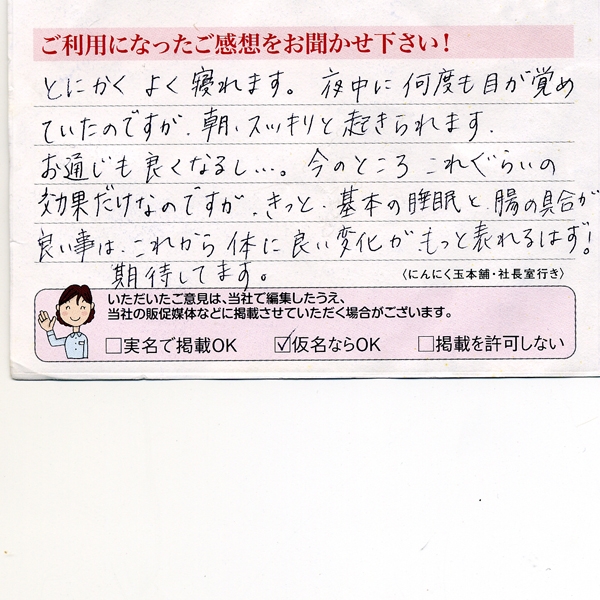 ご利用になったご感想をお聞かせ下さい！
とにかく よく寝れます。夜中に何度も目が覚め
ていたのですが、朝、スッキリと起きられます。
お通じも良くなるし…。今のところ これぐらいの
効果だけなのですが、きっと、基本の睡眠と、腸の具合が
良い事は、これから体に良い変化がもっと表れるはず!
期待してます。
〈にんにく玉本舗・社長室行き〉
いただいたご意見は、当社で編集したうえ、
当社の販促媒体などに掲載させていただく場合がございます。
□実名で掲載OK ☑仮名ならOK □掲載を許可しない